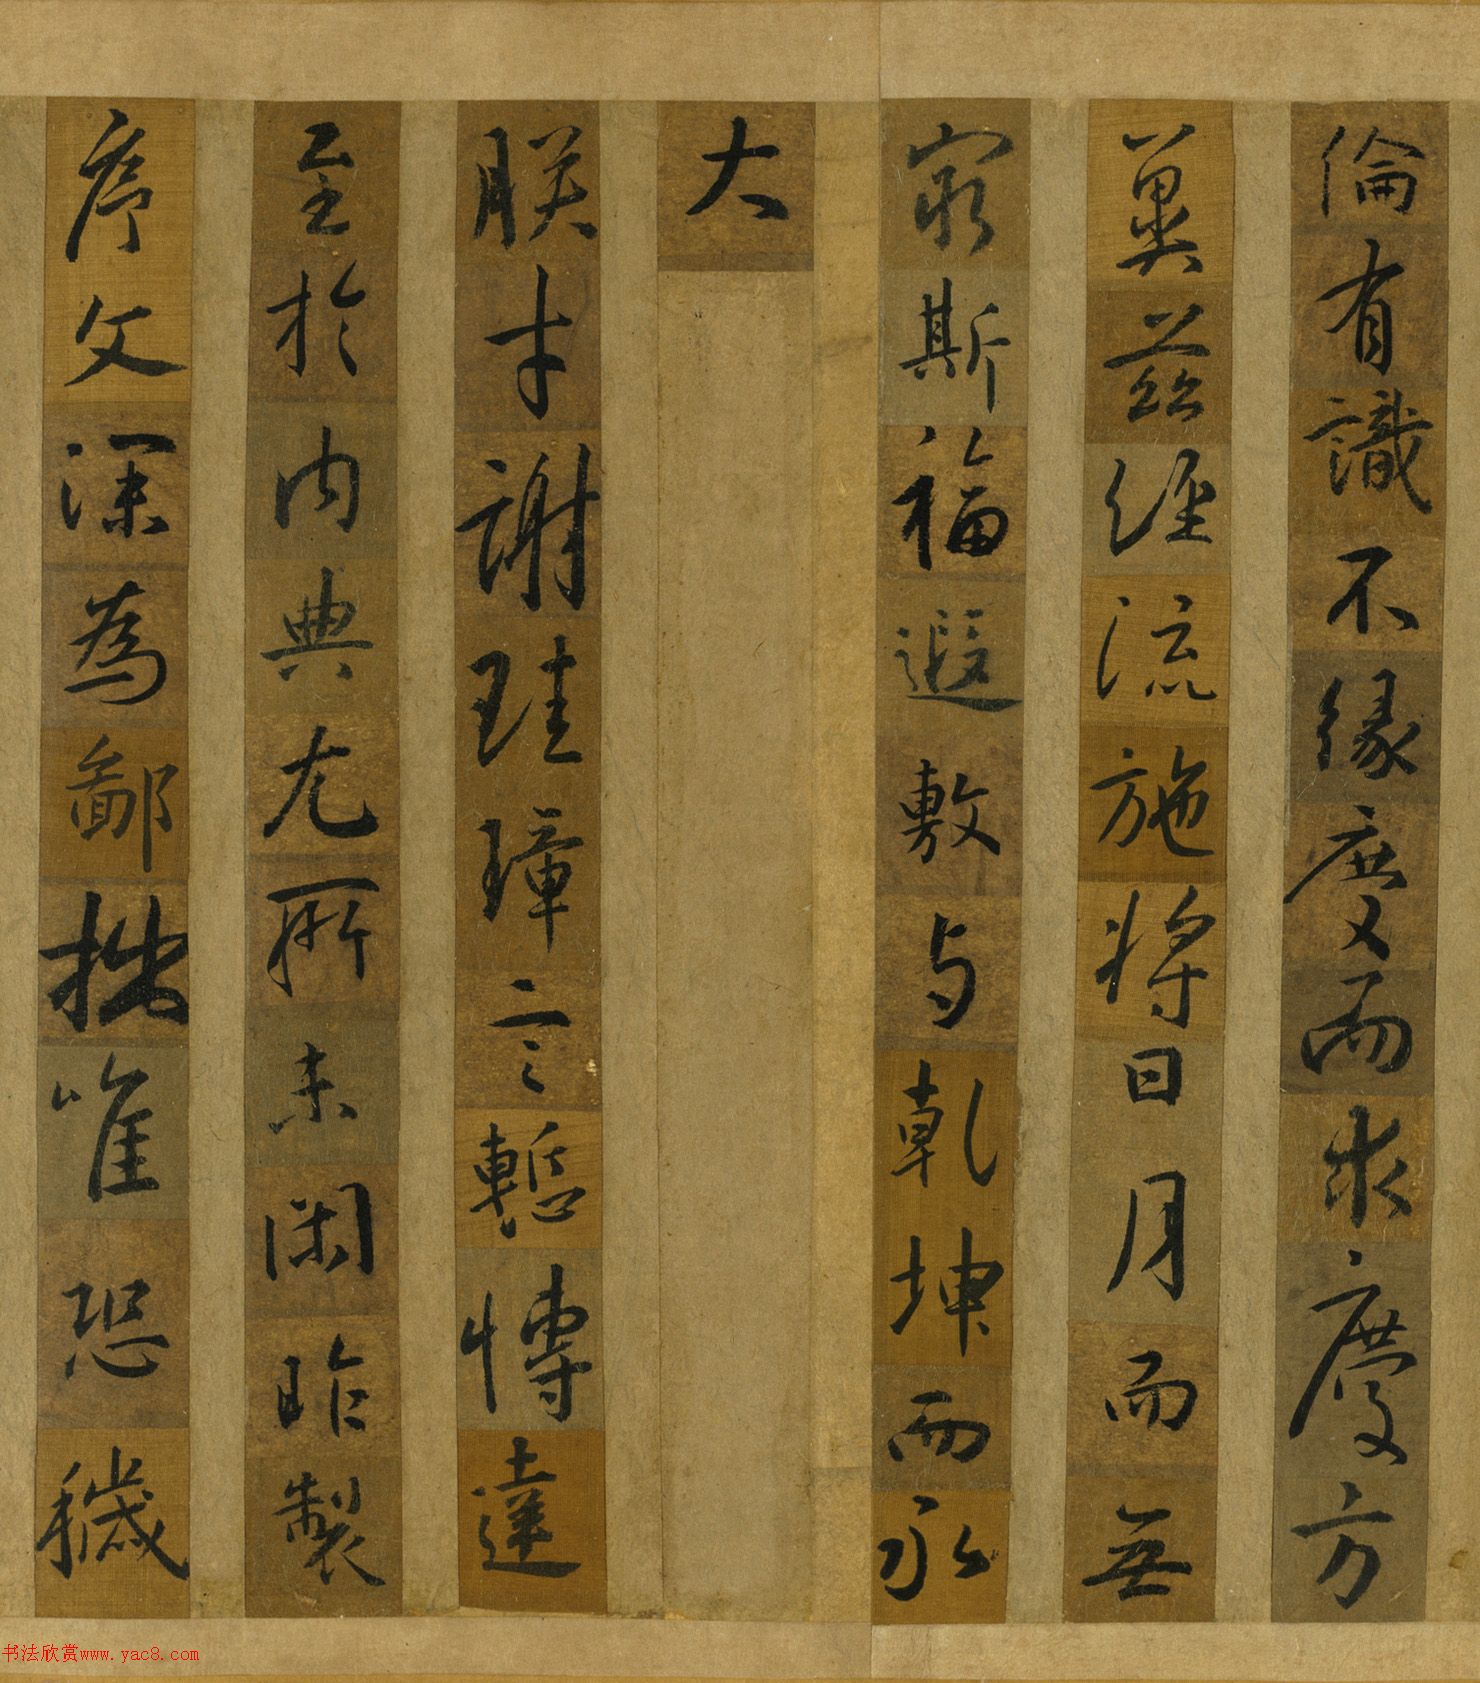 倫有識不緣慶而求慶方
冀茲經流施將日月而無
窮斯福遐敷与乾坤而永
大
朕才謝珪璋言慙博達
至於内典尤所未閑昨製
序文深為鄙拙唯恐穢
书法欣赏www.yac8.com